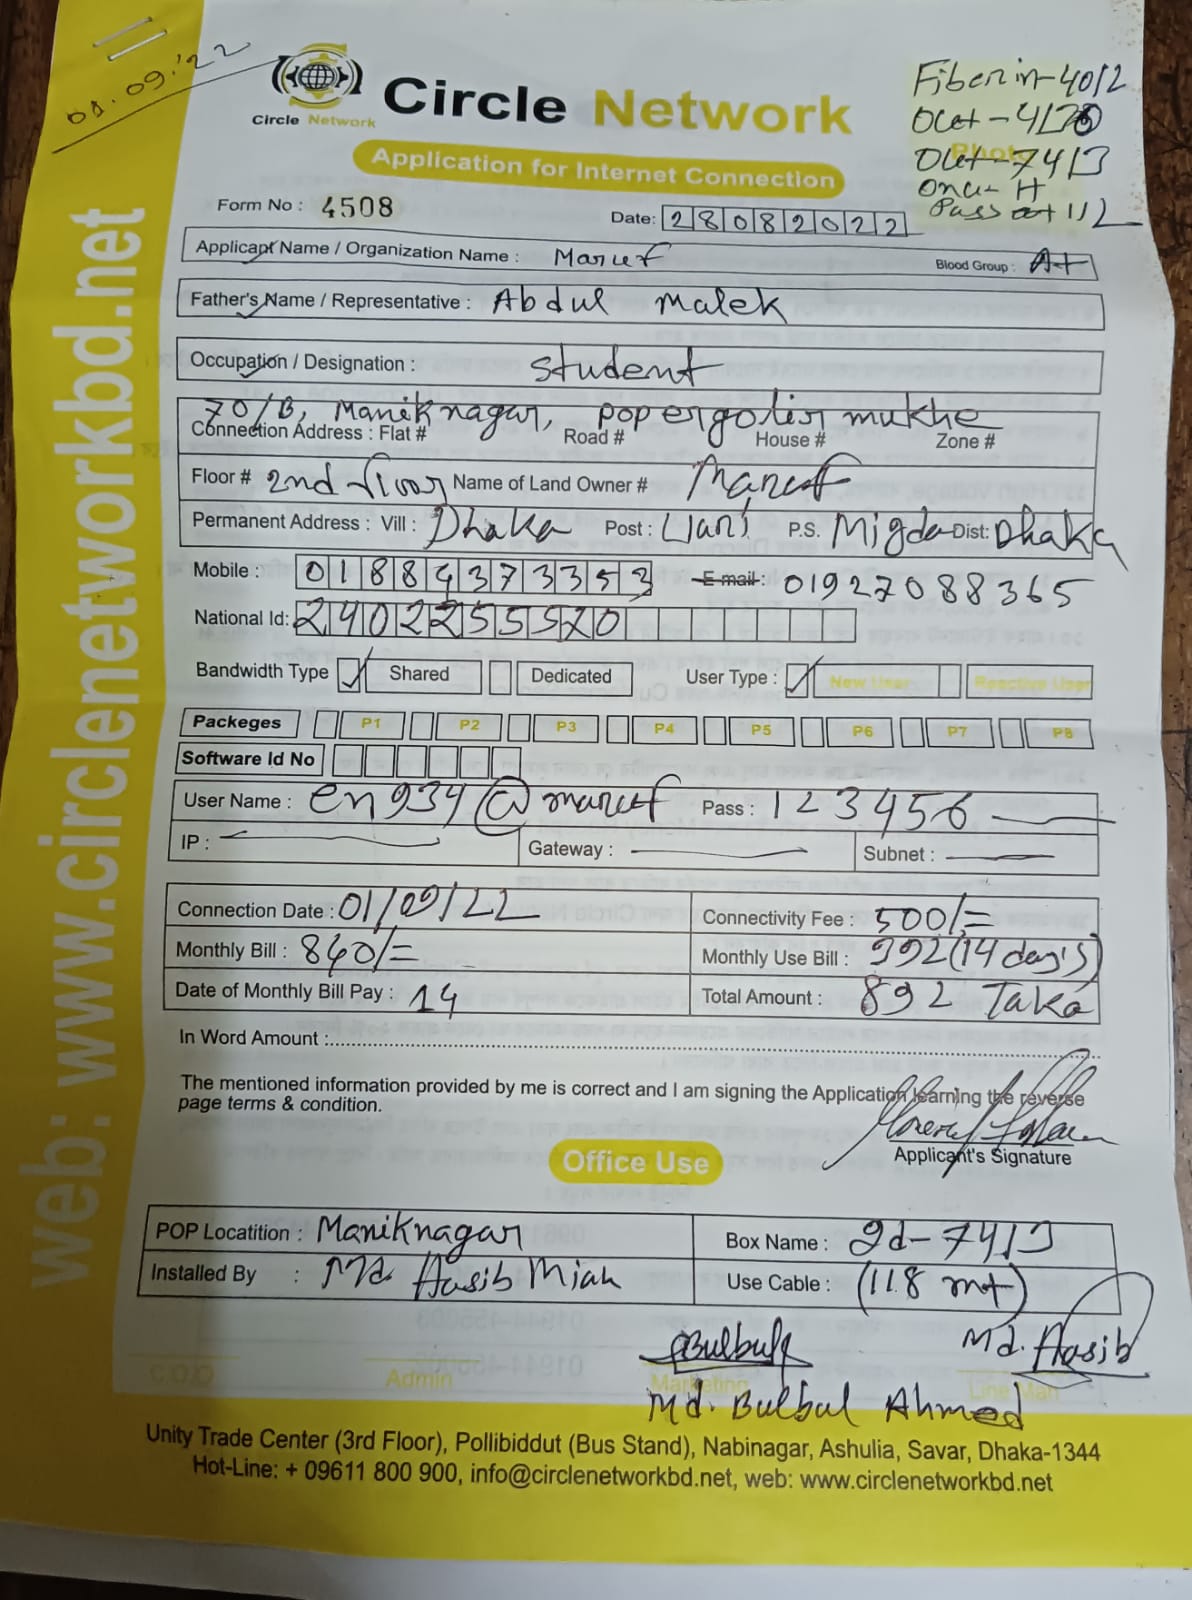 01.09.'22
Circle Network
Circle Network
Fiber in-4012
Application for Internet Connection
Out-7413
Onu- H
Form No : 4508
Date: 28082022
Applicant Name / Organization Name : Maruf Blood Group : A+
Father's Name / Representative : Abdul Malek
Occupation / Designation : Student
70/B, Maniknagar, pop ergolir mukhe
Connection Address : Flat # Road # House # Zone #
Floor # 2nd floor Name of Land Owner # Maruf
Permanent Address : Vill : Dhaka Post : P.S. Migda Dist: Dhaka
Mobile : 01884373353 E-mail : 01927088365
National Id: 2402255520
Bandwidth Type Shared Dedicated User Type : New User Reactive User
Packeges P1 P2 P3 P4 P5 P6 P7 P8
Software Id No
User Name : en934@maruf Pass : 123456
IP : Gateway : Subnet :
Connection Date : 01/09/22 Connectivity Fee : 500/=
Monthly Bill : 840/= Monthly Use Bill : 392 (14 day's)
Date of Monthly Bill Pay : 14 Total Amount : 892 Taka
In Word Amount :
The mentioned information provided by me is correct and I am signing the Application learning the reverse
page terms & condition.
Applicant's Signature
Office Use
POP Locatition : Maniknagar Box Name : 2d-7413
Installed By : Md. Hasib Miah Use Cable : (118 mt)
Bulbul Md. Hasib
C.O.O Admin Marketing Line Man
Md. Bulbul Ahmed
Unity Trade Center (3rd Floor), Pollibiddut (Bus Stand), Nabinagar, Ashulia, Savar, Dhaka-1344
Hot-Line: + 09611 800 900, info@circlenetworkbd.net, web: www.circlenetworkbd.net
web: www.circlenetworkbd.net